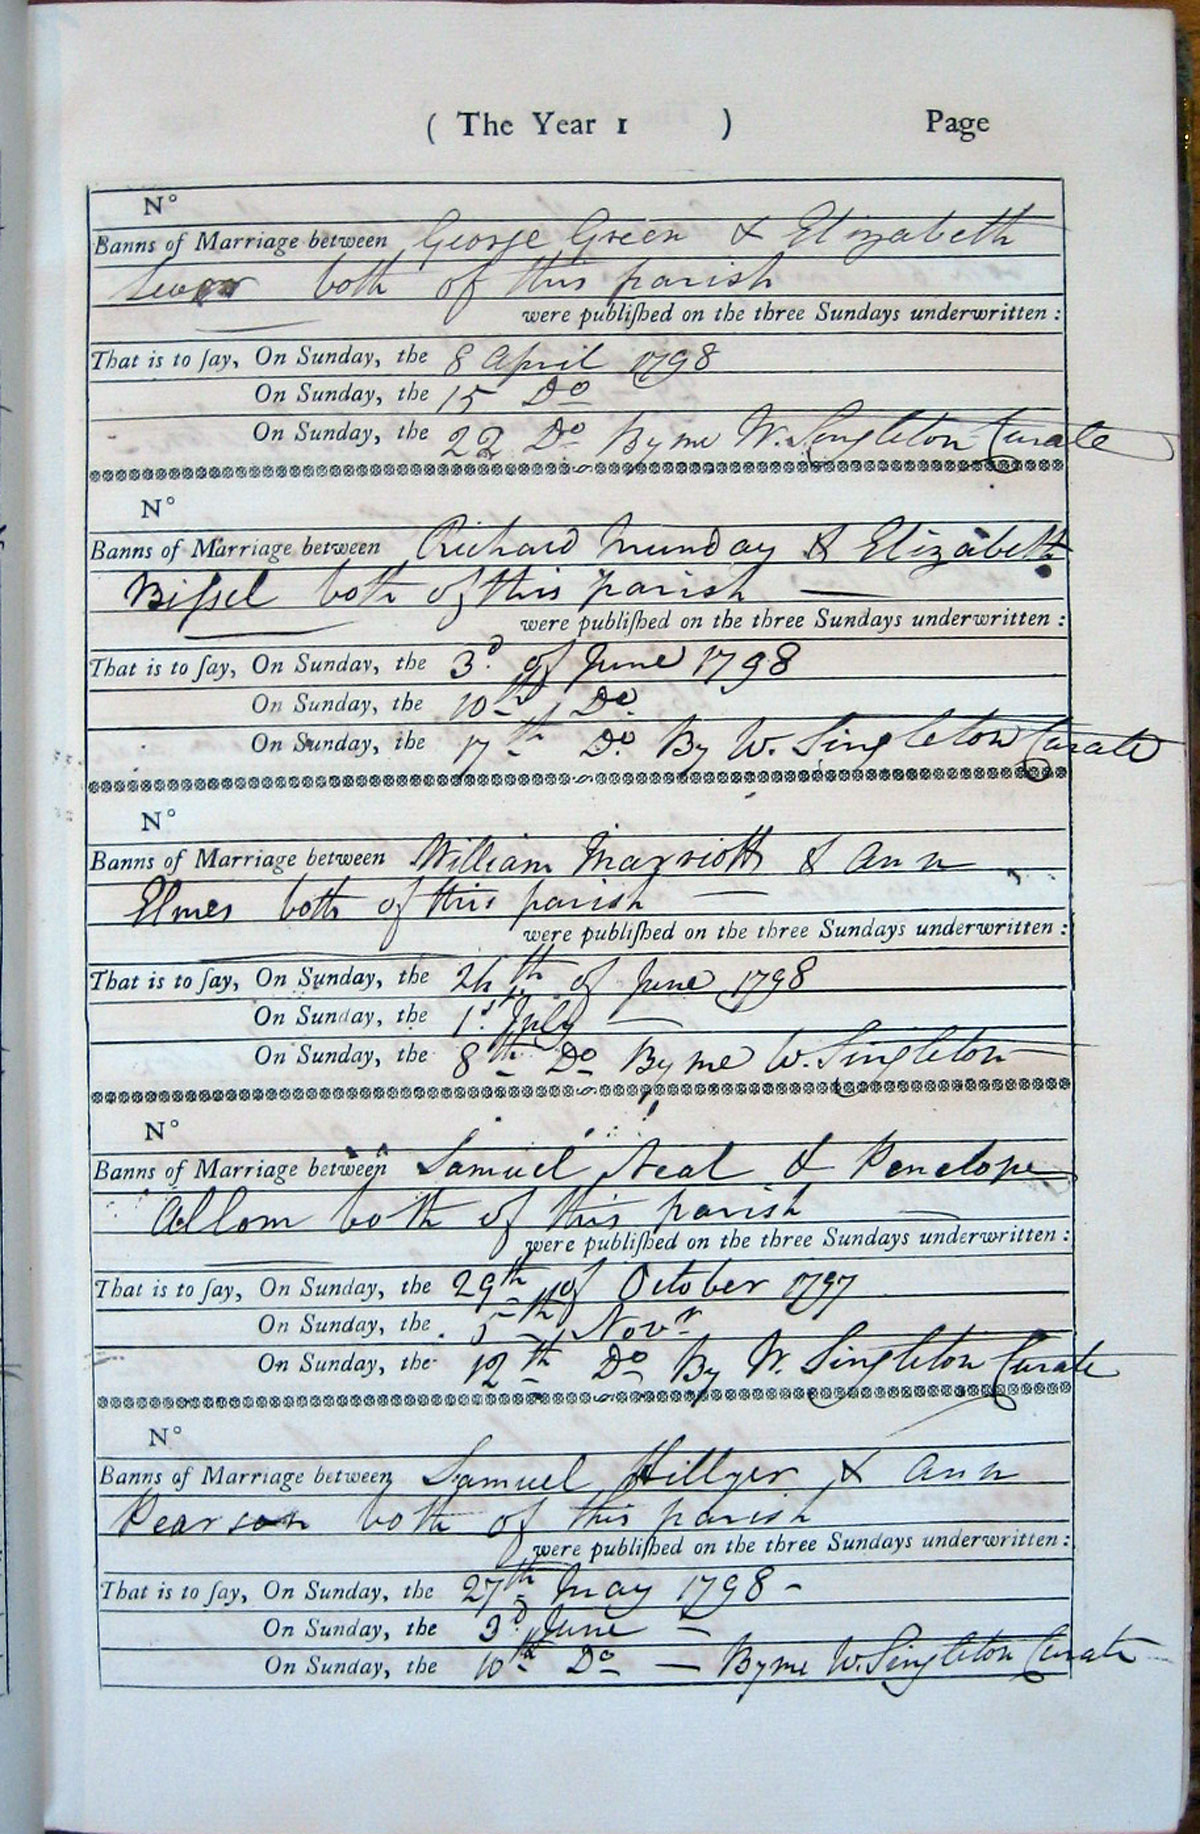 ( The Year 1 ) Page
N°
Banns of Marriage between George Green & Elizabeth
both of this parish
were publiſhed on the three Sundays underwritten :
That is to ſay, On Sunday, the 8 April 1798
On Sunday, the 15 Do
On Sunday, the 22 Do By me W. Singleton Curate
N°
Banns of Marriage between Richard Munday & Elizabeth
Biſsel both of this parish
were publiſhed on the three Sundays underwritten :
That is to ſay, On Sunday, the 3d. of June 1798
On Sunday, the 10th Do.
On Sunday, the 17th Do. By W. Singleton Curate
N°
Banns of Marriage between William Marriott & Ann
Elmes both of this parish
were publiſhed on the three Sundays underwritten :
That is to ſay, On Sunday, the 24th of June 1798
On Sunday, the 1st. July
On Sunday, the 8th Do By me W. Singleton
N°
Banns of Marriage between Samuel Neal & Penelope
Allom both of this parish
were publiſhed on the three Sundays underwritten :
That is to ſay, On Sunday, the 29th of October 1797
On Sunday, the 5th Novr
On Sunday, the 12th Do By W. Singleton Curate
N°
Banns of Marriage between Samuel Hillyer & Ann
Pearson both of this parish
were publiſhed on the three Sundays underwritten :
That is to ſay, On Sunday, the 27th May 1798 -
On Sunday, the 3d June
On Sunday, the 10th Do — By me W. Singleton Curate